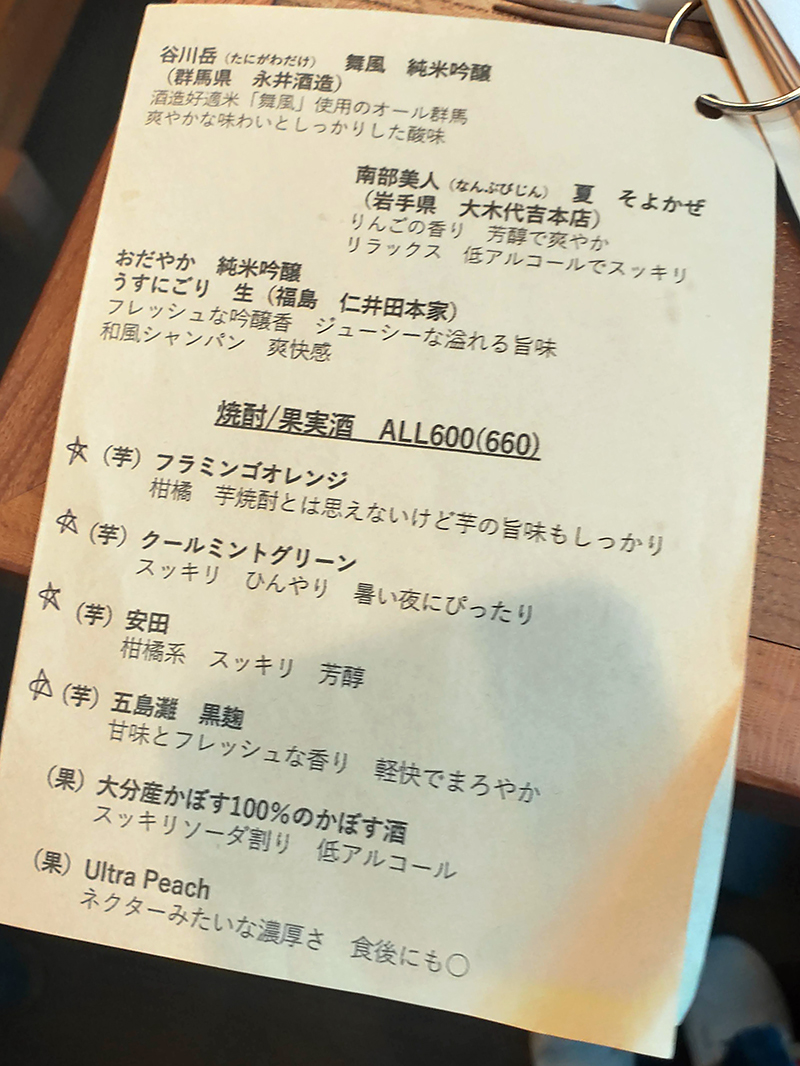 谷川岳（たにがわだけ）　舞風　純米吟醸
（群馬県　永井酒造）
酒造好適米「舞風」使用のオール群馬
爽やかな味わいとしっかりした酸味
南部美人（なんぶびじん）　夏　そよかぜ
（岩手県　大木代吉本店）
りんごの香り　芳醇で爽やか
リラックス　低アルコールでスッキリ
おだやか　純米吟醸
うすにごり　生（福島　仁井田本家）
フレッシュな吟醸香　ジューシーな溢れる旨味
和風シャンパン　爽快感
焼酎/果実酒　ALL600(660)
☆（芋）フラミンゴオレンジ
柑橘　芋焼酎とは思えないけど芋の旨味もしっかり
☆（芋）クールミントグリーン
スッキリ　ひんやり　暑い夜にぴったり
☆（芋）安田
柑橘系　スッキリ　芳醇
☆（芋）五島灘　黒麹
甘味とフレッシュな香り　軽快でまろやか
（果）大分産かぼす100%のかぼす酒
スッキリソーダ割り　低アルコール
（果）Ultra Peach
ネクターみたいな濃厚さ　食後にも〇